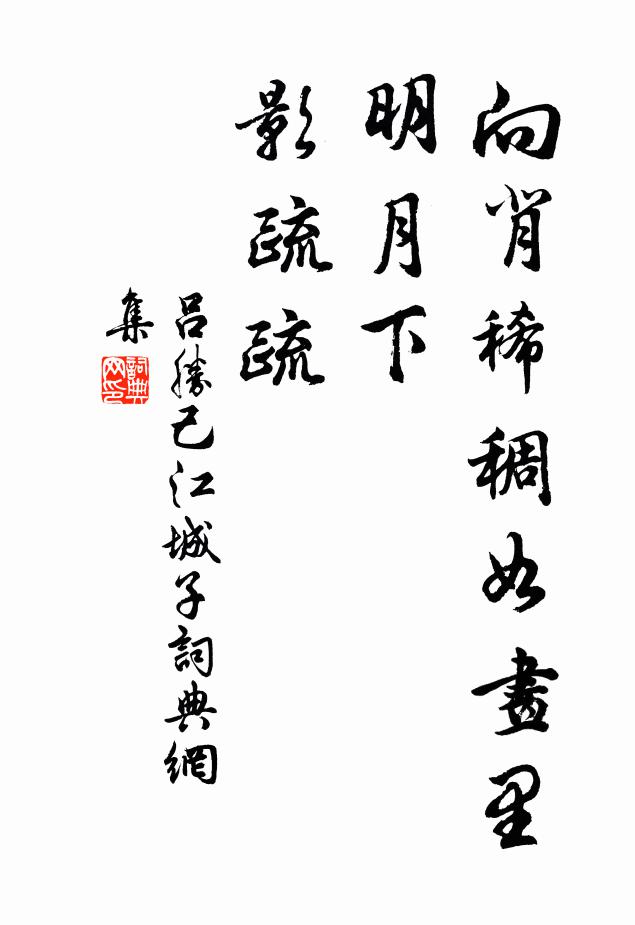 向背稀稠如畫里
明月下
影疏疏
呂勝己江城子詞典網
集
詞典网印